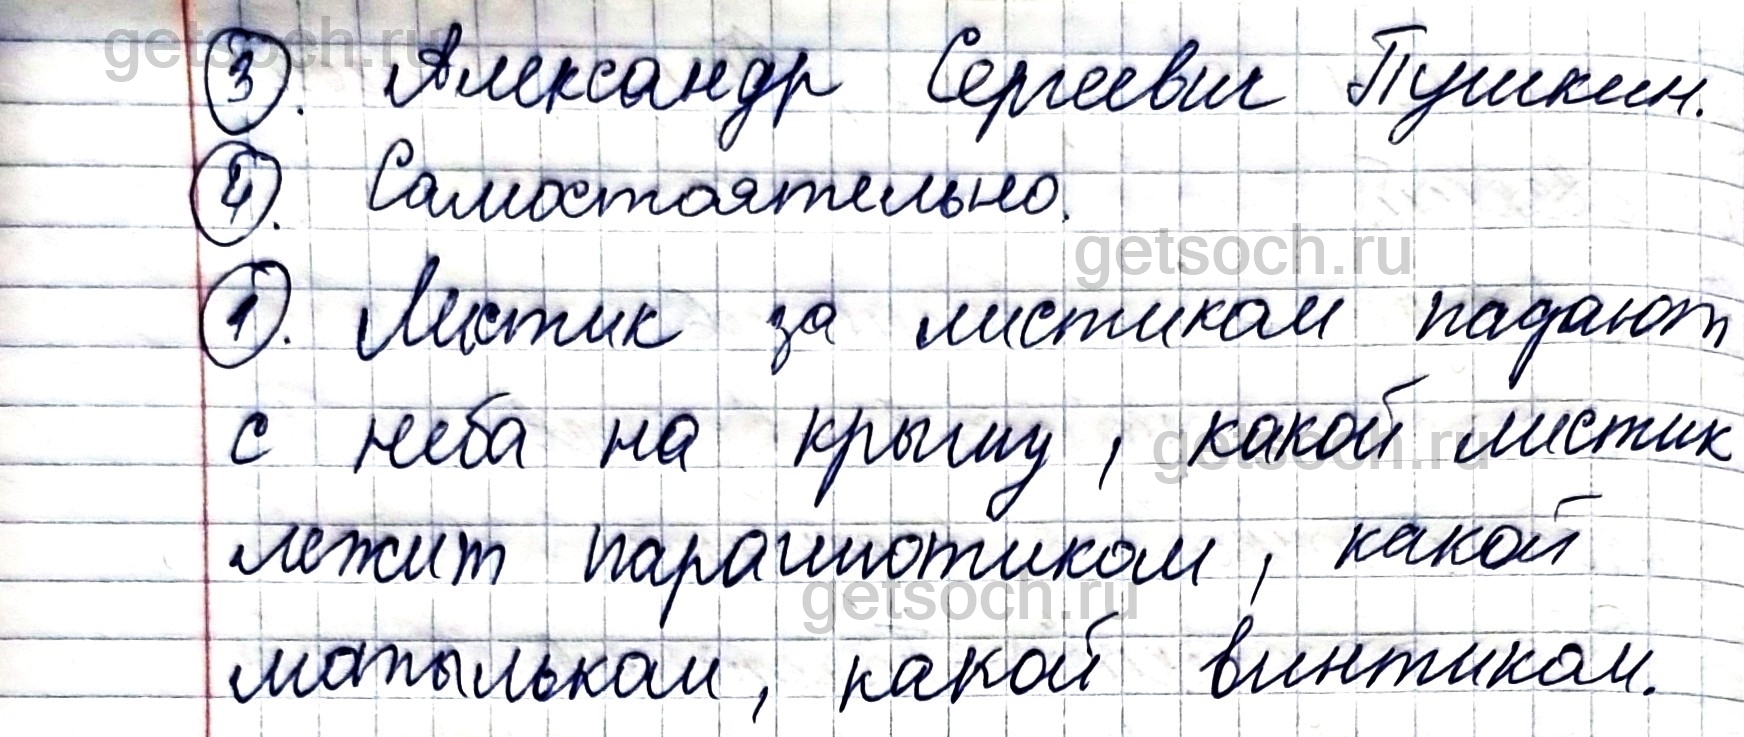 getsoch.ru
3. Александр Сергеевич Пушкин.
4. Самостоятельно.
getsoch.ru
1. Листик за листиком падают
с неба на крышу, какой листик
getsoch.ru
лежит парашютиком, какой
getsoch.ru
мотыльком, какой винтиком.